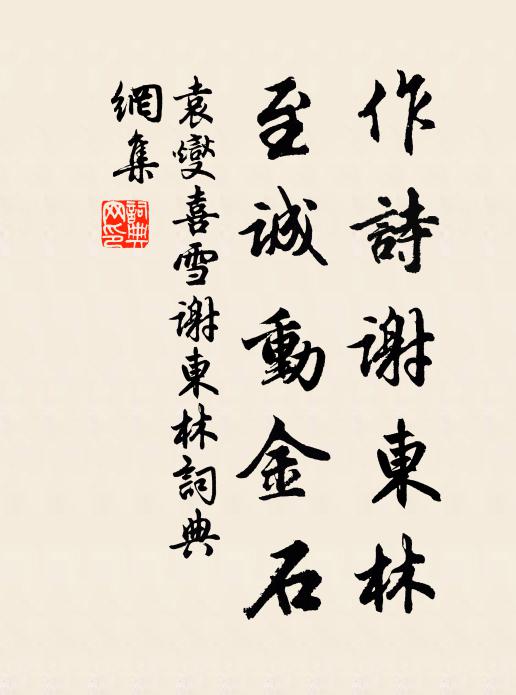 作詩謝東林
至誠動金石
袁燮喜雪謝東林詞典
網集
詞典網印